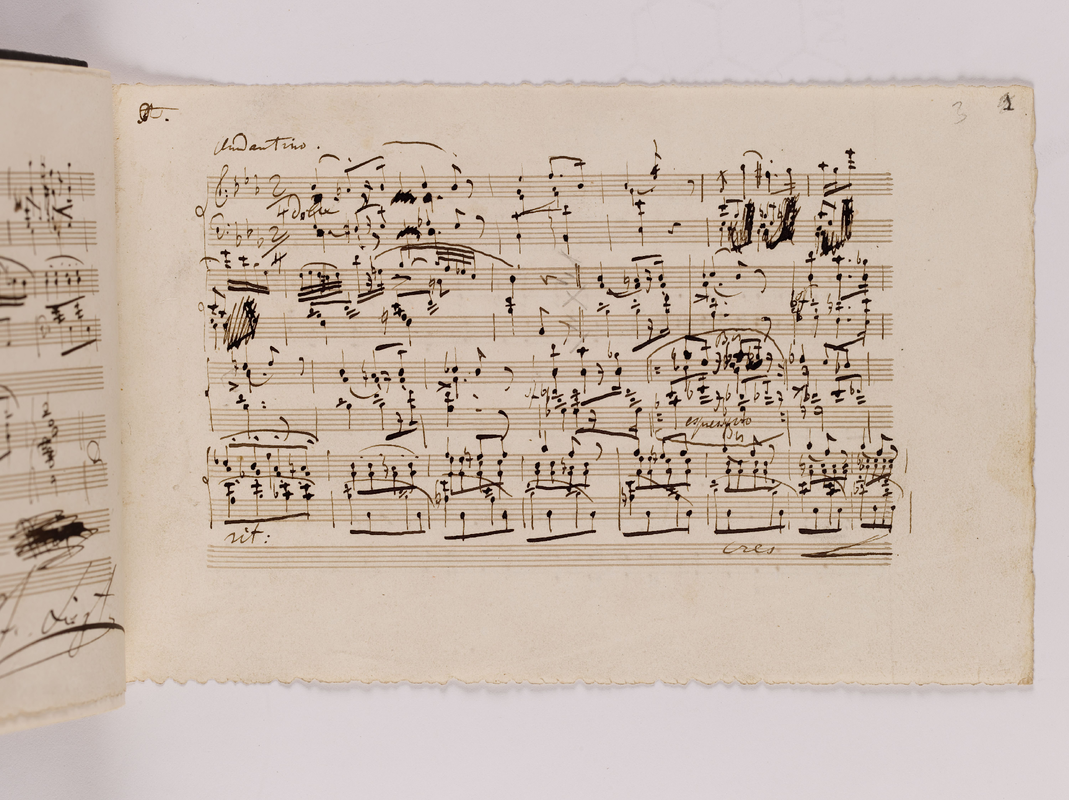 3 1
Andantino.
2
4 dolce
2
4
espressivo
rit:
cres
F. Liszt